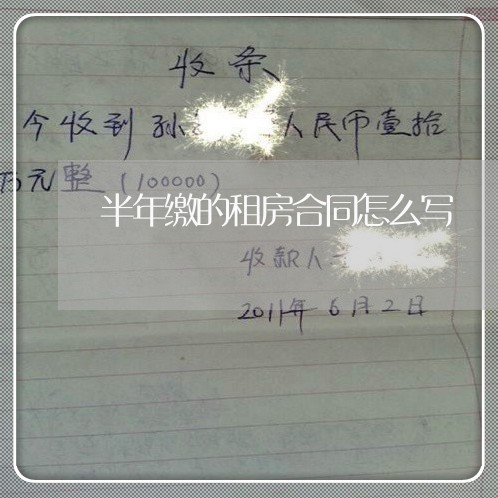 收条
今收到孙 人民币壹拾
万元整(100000)
半年缴的租房合同怎么写
收款人
2011年6月2日